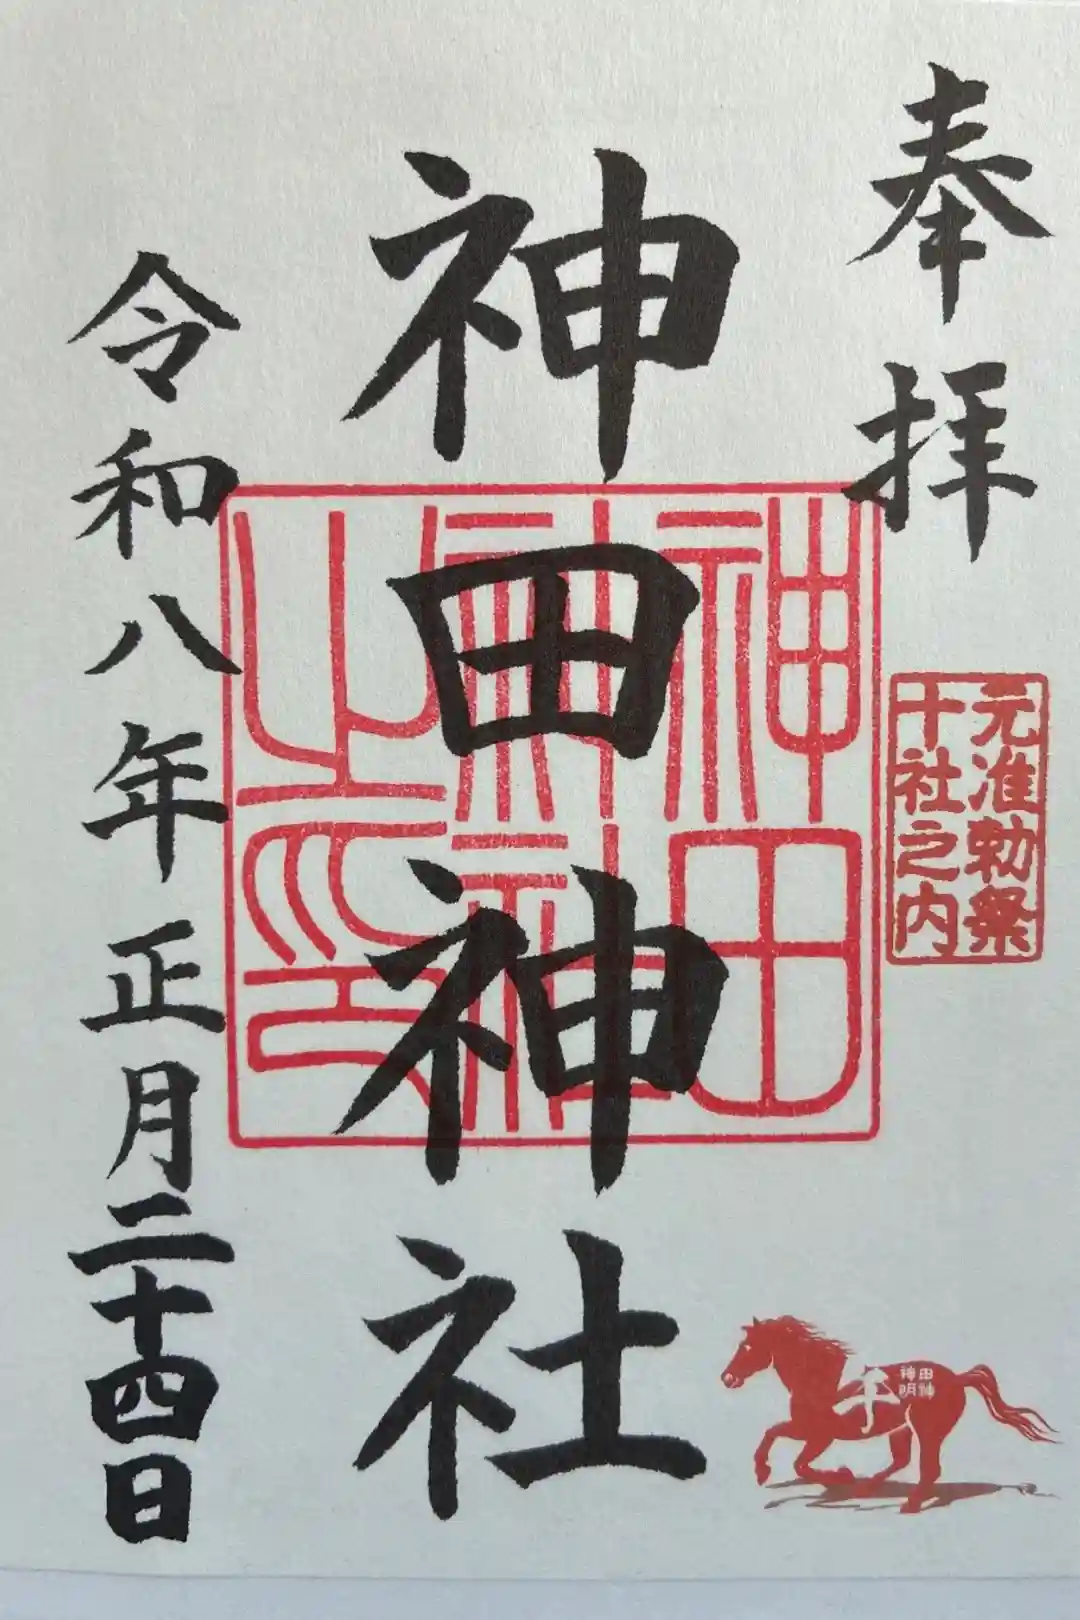 奉拝
元准勅祭
十社之内
神田神社
神田
神社
之印
令和八年正月二十四日
午
神田
明神